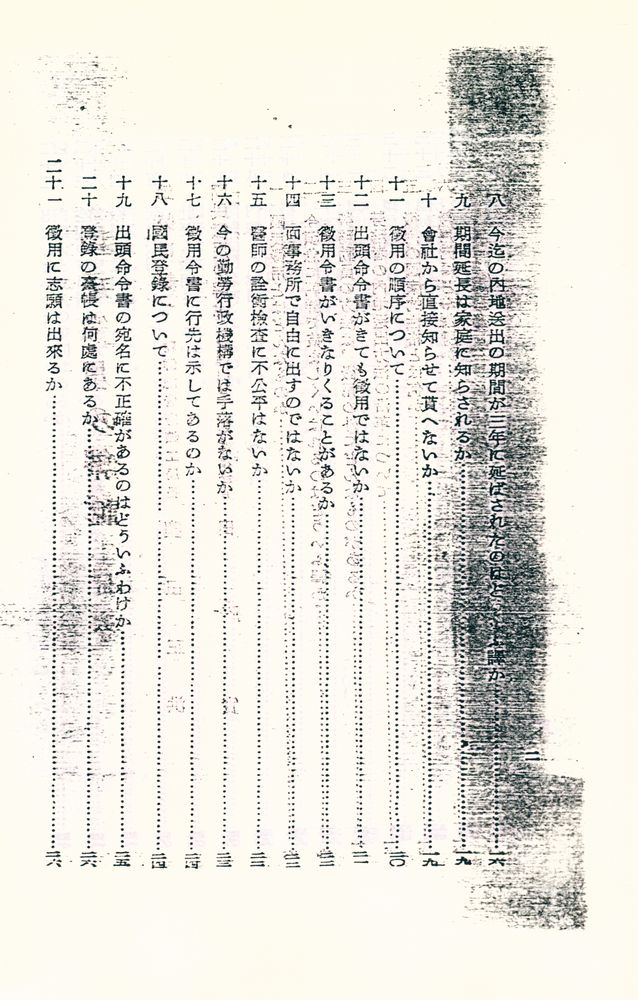 八 今迄の内地送出の期間が三年に延ばされたのはどういふ譯か……一六
九 期間延長は家庭に知らされるか……一九
十 會社から直接知らせて貰へないか……一九
十一 徵用の順序について……二〇
十二 出頭命令書がきても徵用ではないか……二一
十三 徵用令書がいきなりくることがあるか……二二
十四 面事務所で自由に出すのではないか……二二
十五 醫師の詮衡檢查に不公平はないか……二三
十六 今の勤勞行政機構では手落がないか……二三
十七 徵用令書に行先は示してあるのか……二四
十八 國民登錄について……二四
十九 出頭命令書の宛名に不正確があるのはどういふわけか……二五
二十 登錄の臺帳は何處にあるか……二六
二十一 徵用に志願は出來るか……二六